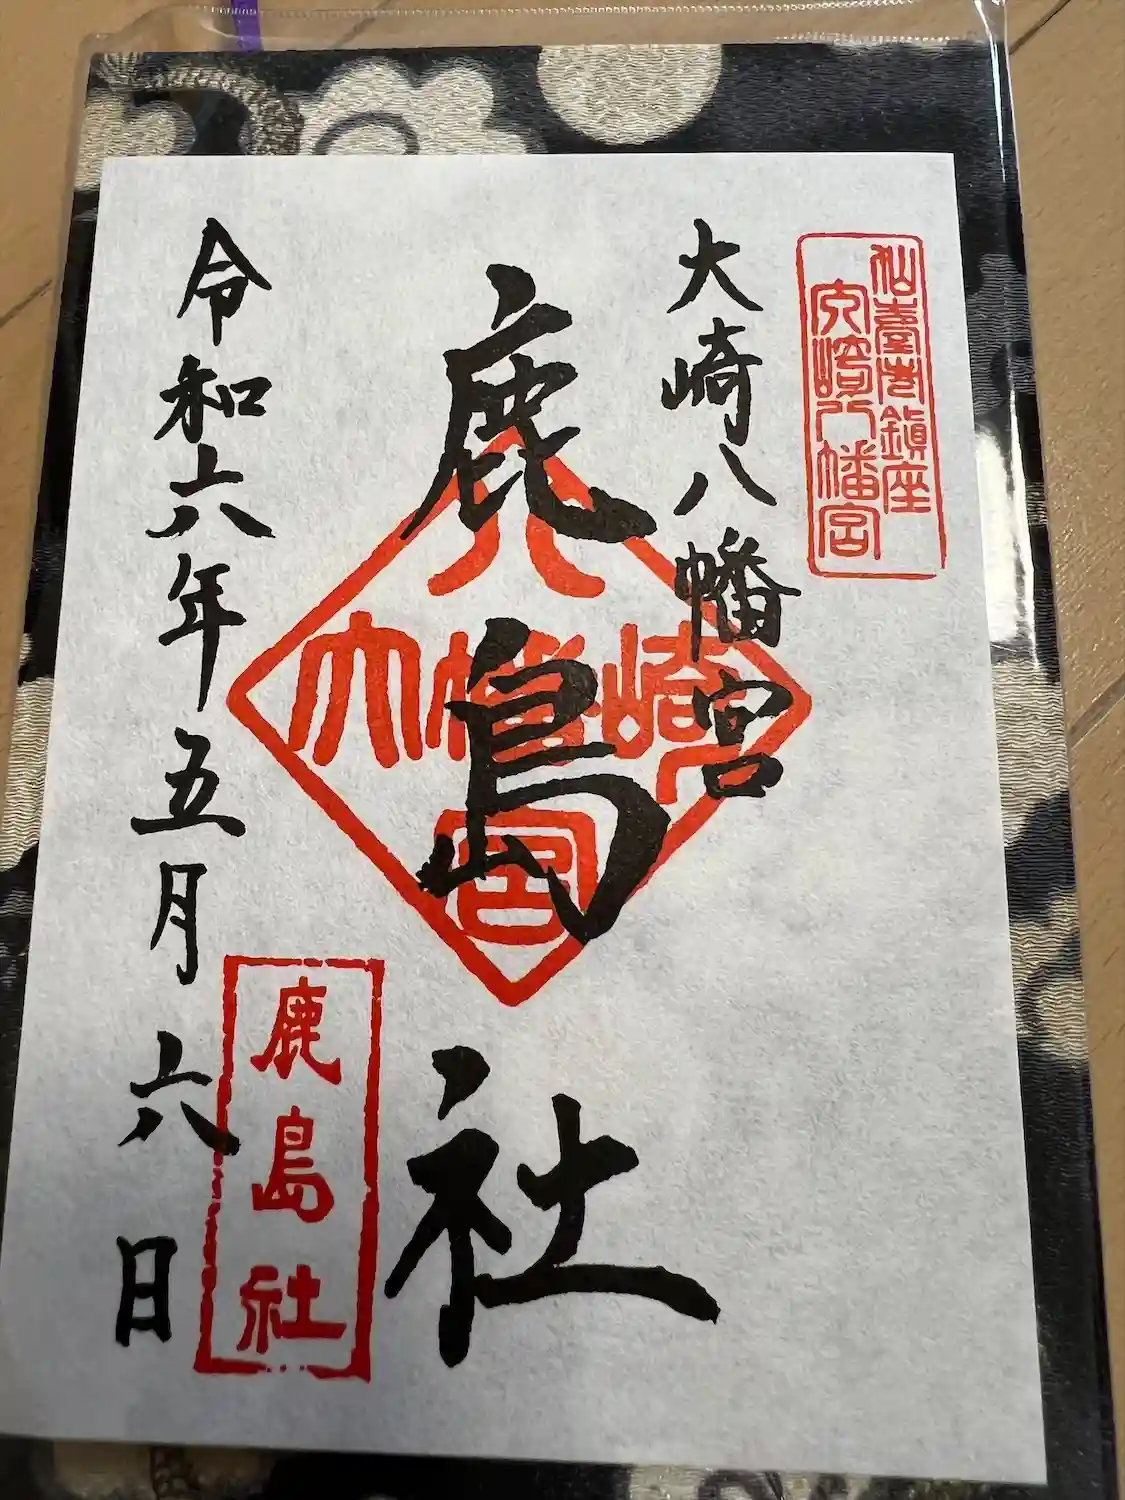 仙臺市鎮座
大崎八幡宮
大崎八幡宮
鹿島社
八
大幡崎
宮
鹿島社
令和六年五月六日